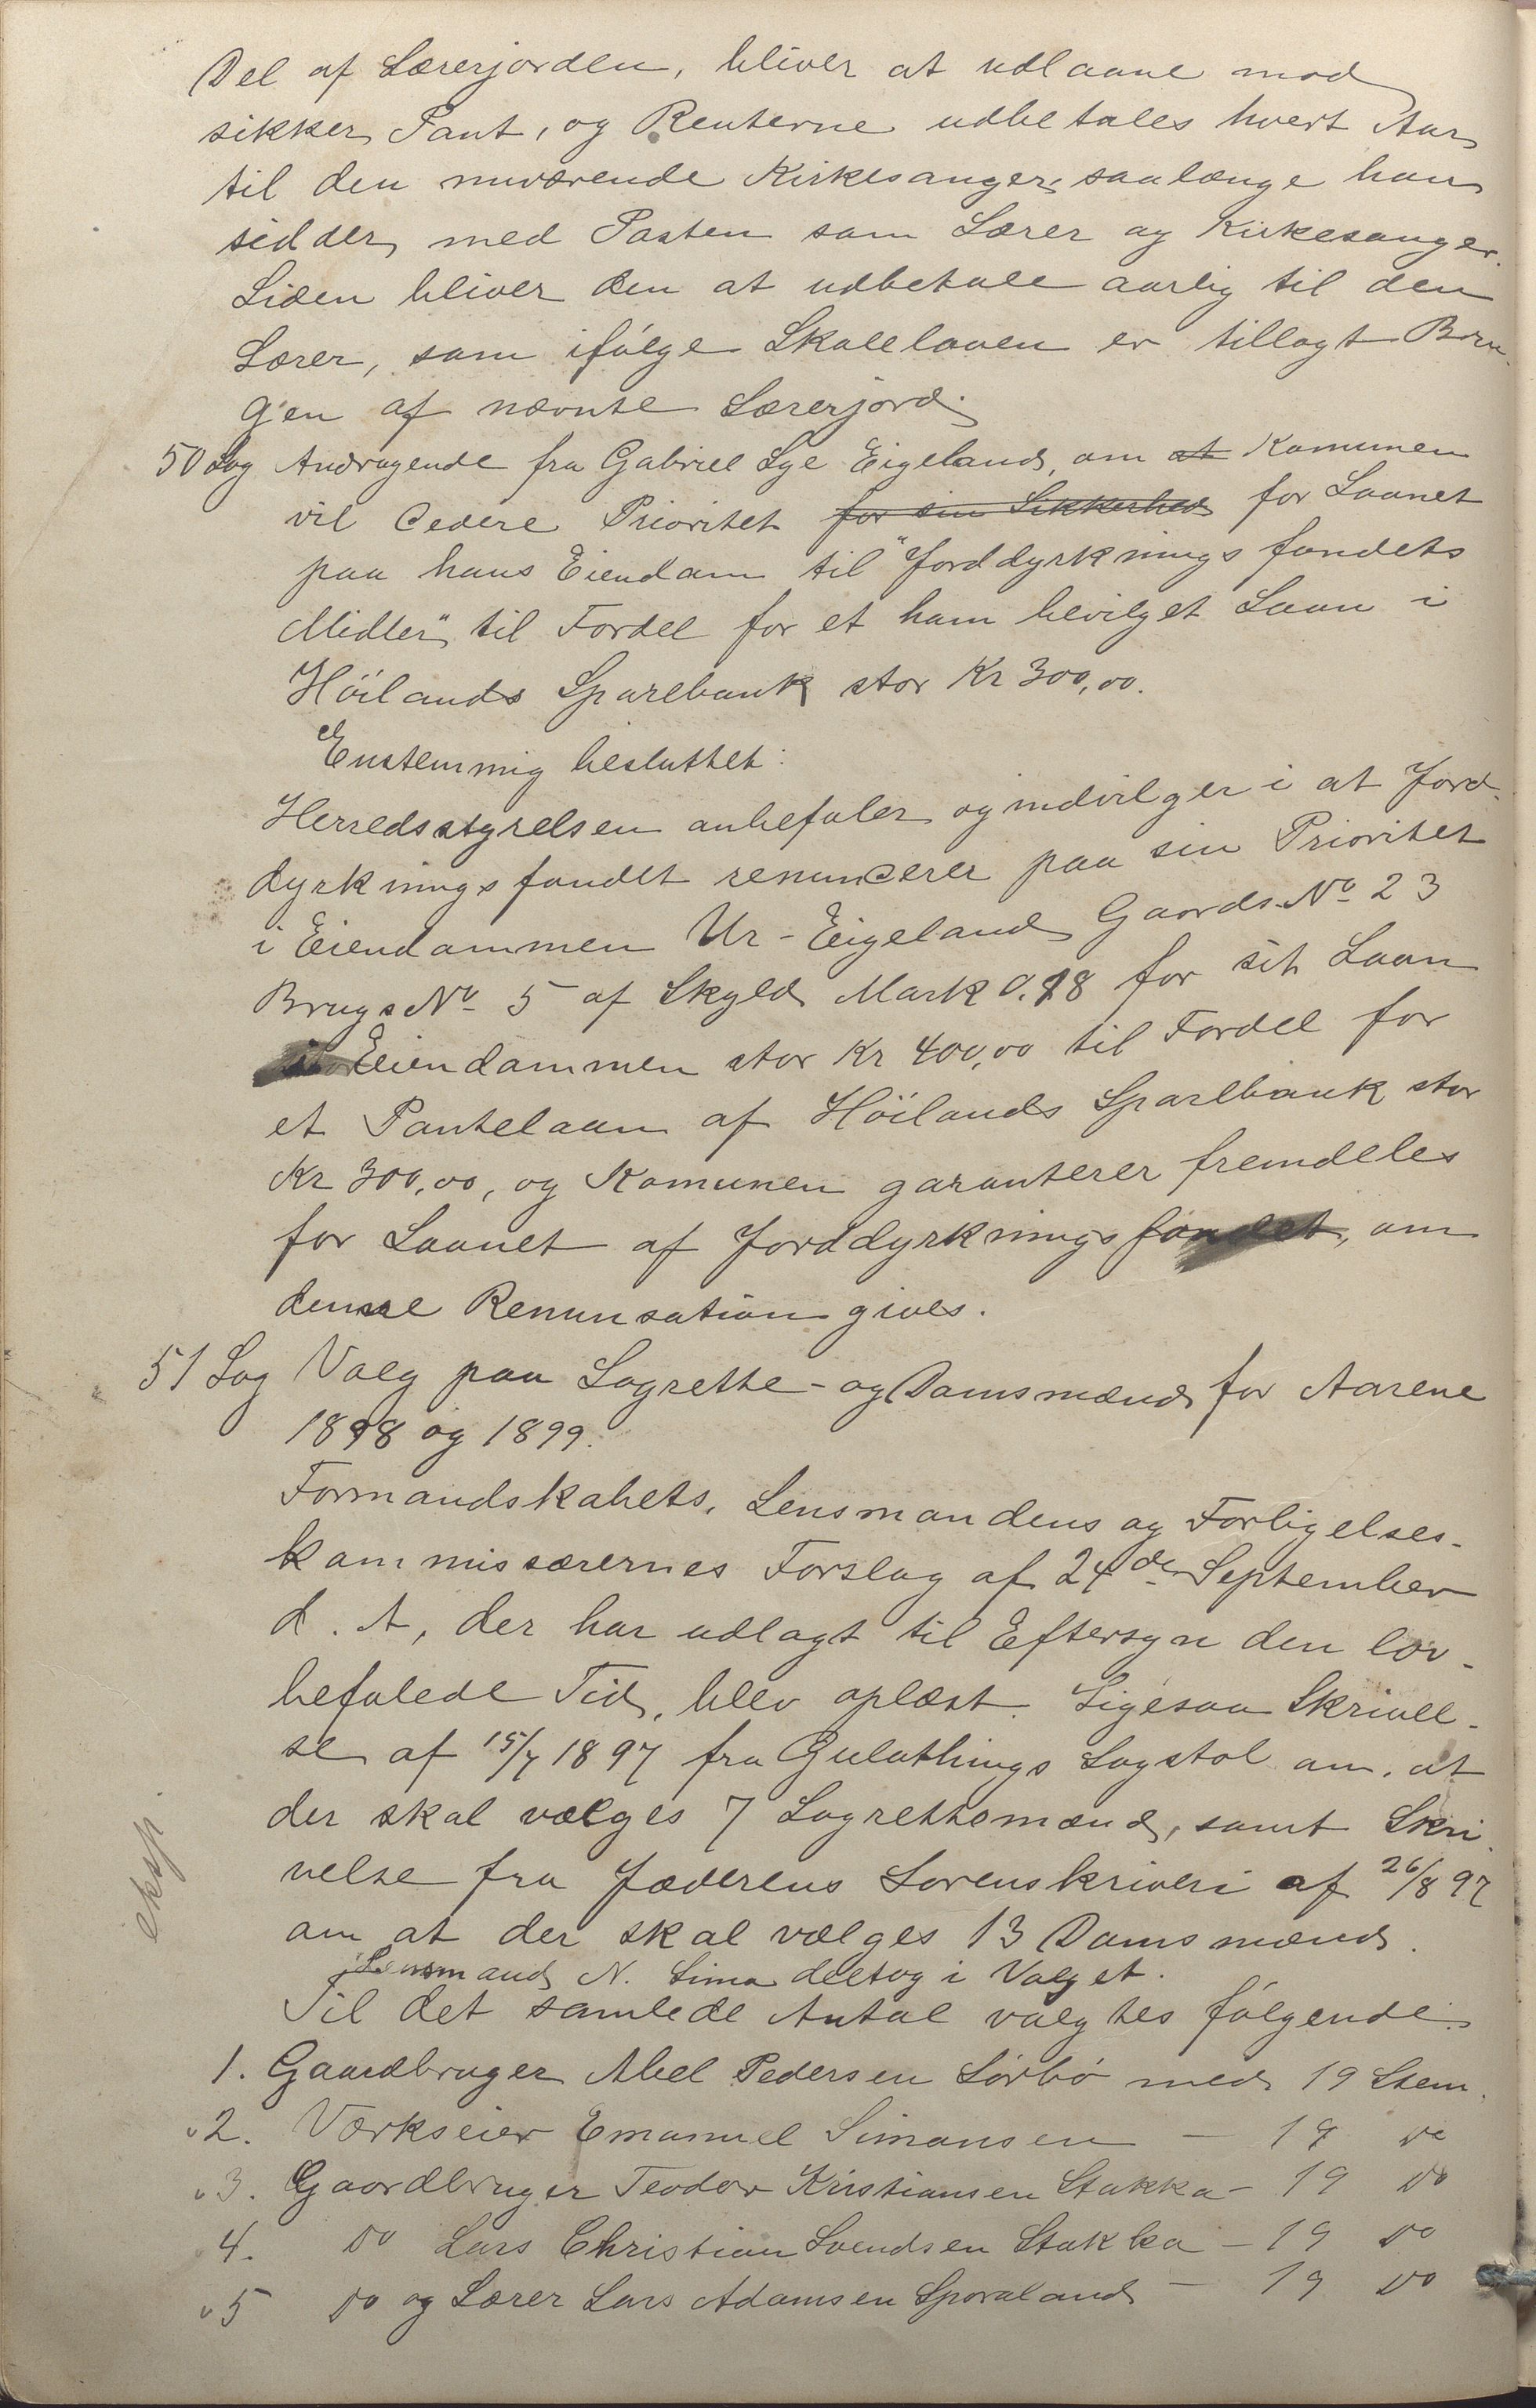 Del af Lærerjorden, bliver at udlaane mod
sikker Pant, og Renterne udbetales hvert Aar
til den nuværende Kirkesanger, saalænge han
sidder med Posten som Lærer og Kirkesanger.
Siden bliver den at udbetale aarlig til den
Lærer, som ifølge Skoleloven er tillagt Bru-
gen af nævnte Lærerjord.
50 Sag Andragende fra Gabriel Lye Eigeland, om at Komunen
vil Cedere Prioritet for sin Sikkerhed for Laanet
paa hans Eiendom til "Jorddyrkningsfondets
Midler" til Fordel for et ham bevilget Laan i
Höilands Sparebank stor Kr 300,00.
Enstemmig besluttet:
Herredsstyrelsen anbefaler og indvilger i at Jord-
dyrkningsfondet renuncerer paa sin Prioritet
i Eiendommen Ur-Eigeland Gaards No 23
Brugs No 5 af Skyld Mark 0.98 for sit Laan
i Eiendommen stor Kr 400,00 til Fordel for
et Pantelaan af Höilands Sparebank stor
Kr 300,00, og Komunen garanterer fremdeles
for Laanet af Jorddyrkningsfondet, om
denne Renunsation gives.
51 Sag Valg paa Lagrette- og Domsmænd for Aarene
1898 og 1899.
Formandskabets, Lensmandens og Forligelses-
kommissærernes Forslag af 24de September
d. A, der har udlagt til Eftersyn den lov-
befalede Tid, blev oplæst. Ligesaa Skrivel-
se af 15/7 1897 fra Gulathings Lagstol om, at
der skal vælges 7 Lagrettemænd, samt Skri-
velse fra Jæderens Sorenskriveri af 26/8 97
om at der skal vælges 13 Domsmænd.
Lensmand N. Sima deltog i Valget.
eksp.
Til det samlede Antal valgtes følgende:
1. Gaardbruger Abel Pedersen Sörbö med 19 Stem.
2. Værkseier Emanuel Simonsen — 19 do
3. Gaardbruger Teodor Kristiansen Stokka - 19 do
4. do Lars Christian Svendsen Stokka - 19 do
5 do og Lærer Lars Adamsen Sporaland — 19 do